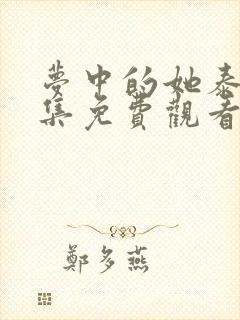 夢中的她泰
集免費觀看
鄭多燕